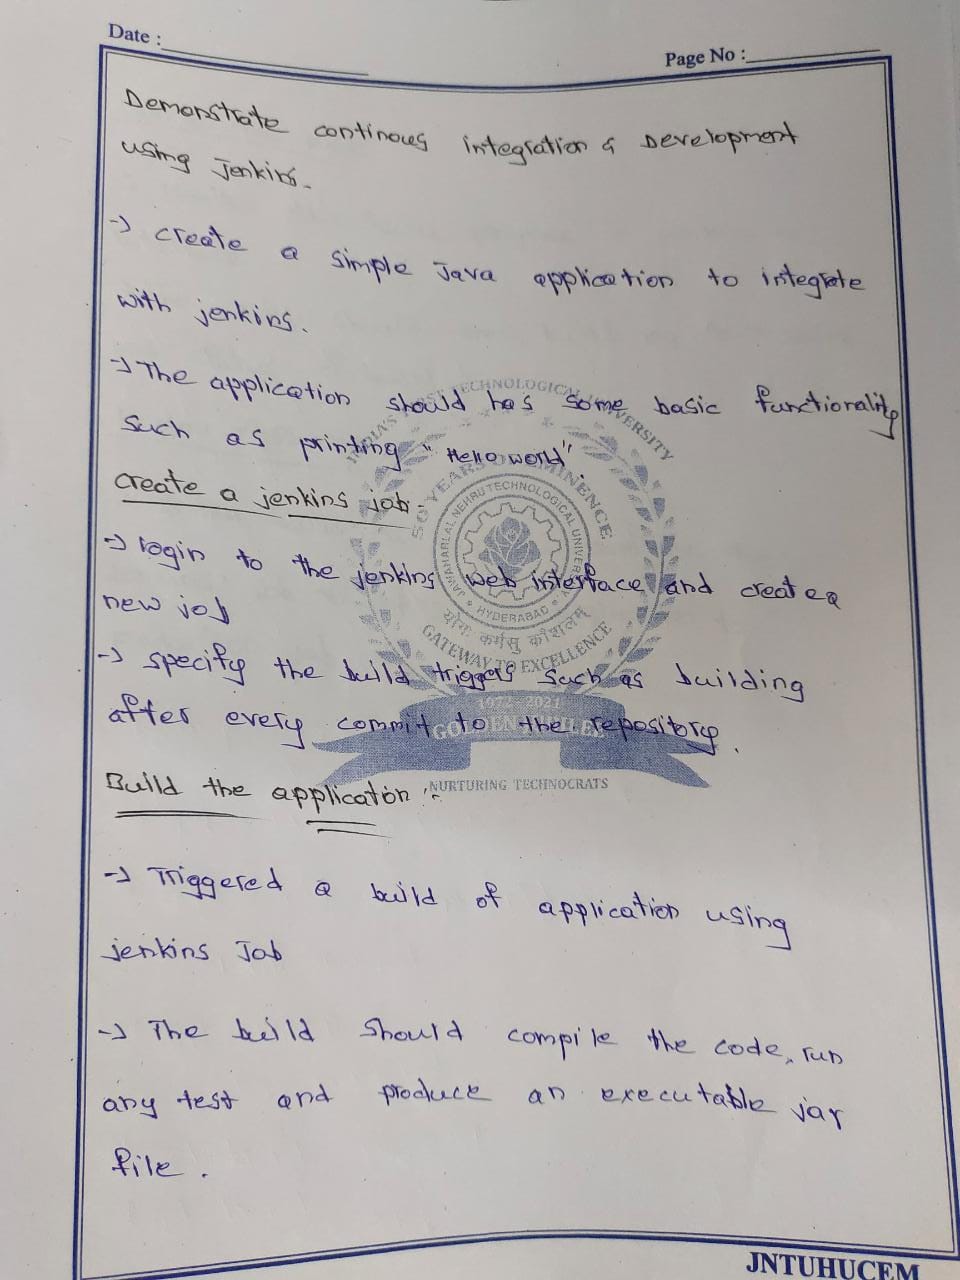 Date :
Page No :
Demonstrate continous integration & Development
using Jenkins.
-> create a simple Java application to integrate
with jenkins.
-> The application should has some basic functionality
such as printing "Hello world".
create a jenkins job:-
-> login to the jenkins web interface and create a
new job
-> specify the build triggers such as building
after every commit to the repository.
Build the application :-
-> Triggered a build of application using
jenkins Job
-> The build should compile the code, run
any test and produce an executable jar
file.
TECHNOLOGICAL UNIVERSITY
JAWAHARLAL NEHRU TECHNOLOGICAL UNIVERSITY
HYDERABAD
योगः कर्मसु कौशलम्
GATEWAY TO EXCELLENCE
1972 - 2021
GOLDEN JUBILEE
NURTURING TECHNOCRATS
JNTUHUCEM